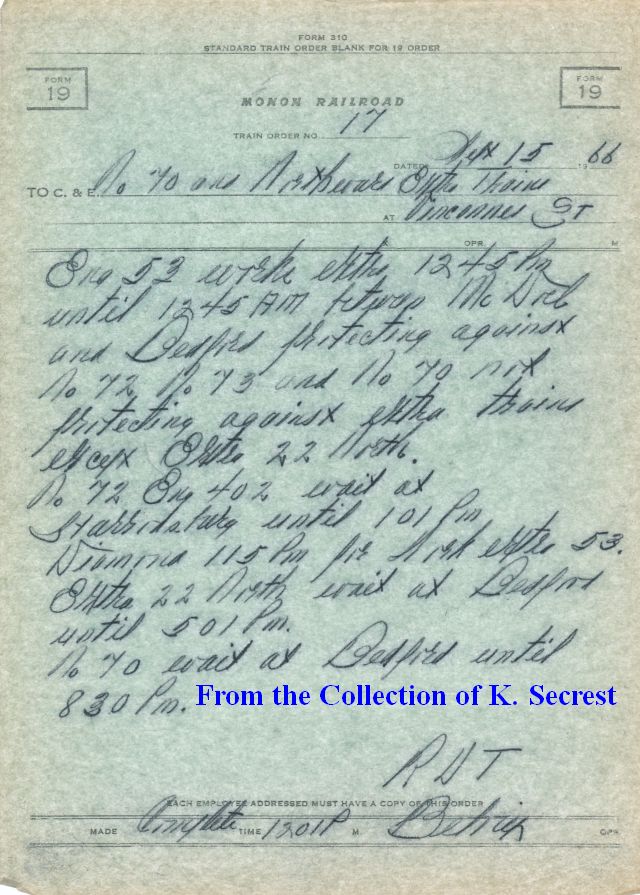 FORM 310
STANDARD TRAIN ORDER BLANK FOR 19 ORDER
FORM 19 FORM 19
MONON RAILROAD
TRAIN ORDER NO. 17
DATED Sept 15 1966
TO C. & E. No 70 and Northward Extra trains
AT Vincennes St
OPR. M
Eng 53 work extra 1245 Pm
until 1245 AM between McDoel
and Bedford protecting against
No 72 No 73 and No 70 not
protecting against extra trains
except Extra 22 North.
No 72 Eng 402 wait at
Harrodsburg until 101 Pm
Diamond 115 Pm for work extra 53.
Extra 22 North wait at Bedford
until 501 Pm.
No 70 wait at Bedford until
830 Pm.
From the Collection of K. Secrest
R D T
EACH EMPLOYEE ADDRESSED MUST HAVE A COPY OF THIS ORDER
MADE Complete TIME 1201 P M. OPR